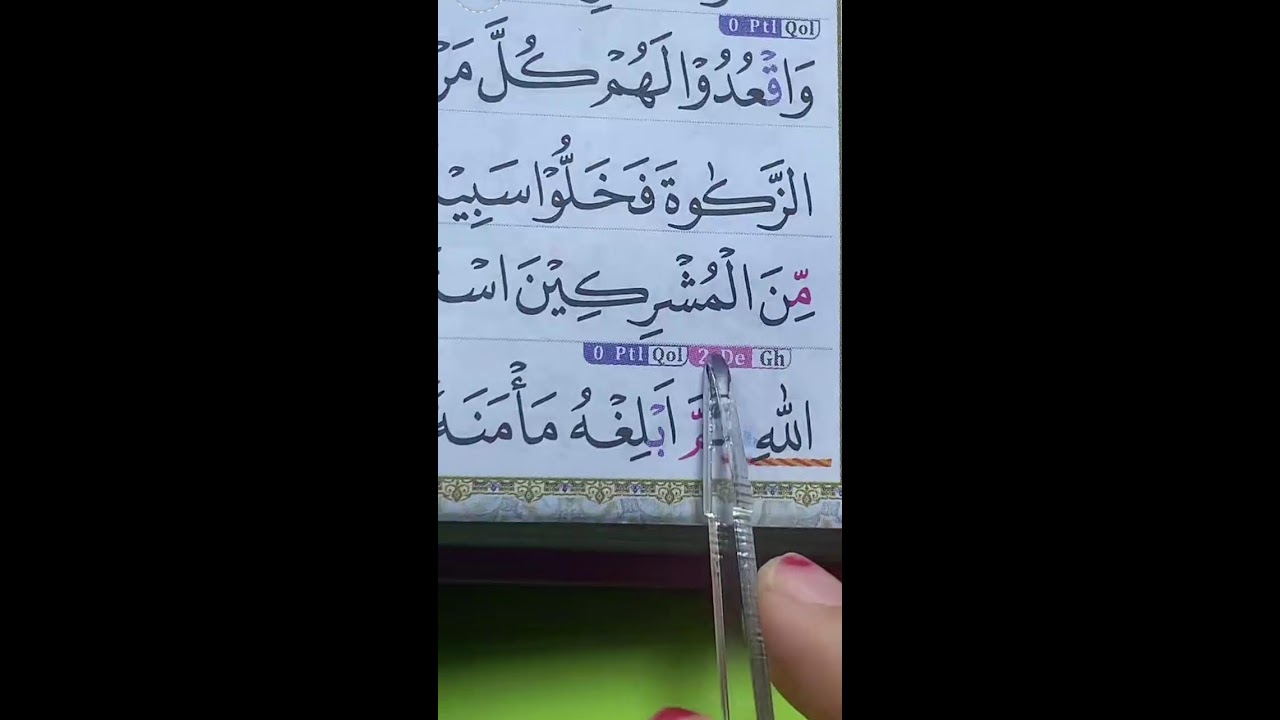 0 Ptl Qol
وَاقْعُدُوْا لَهُمْ كُلَّ
الزَّكٰوةَ فَخَلُّوْا
مِّنَ الْمُشْرِكِيْنَ
0 Ptl Qol 2 De Gh
اللّٰهِ اَبْلِغْهُ